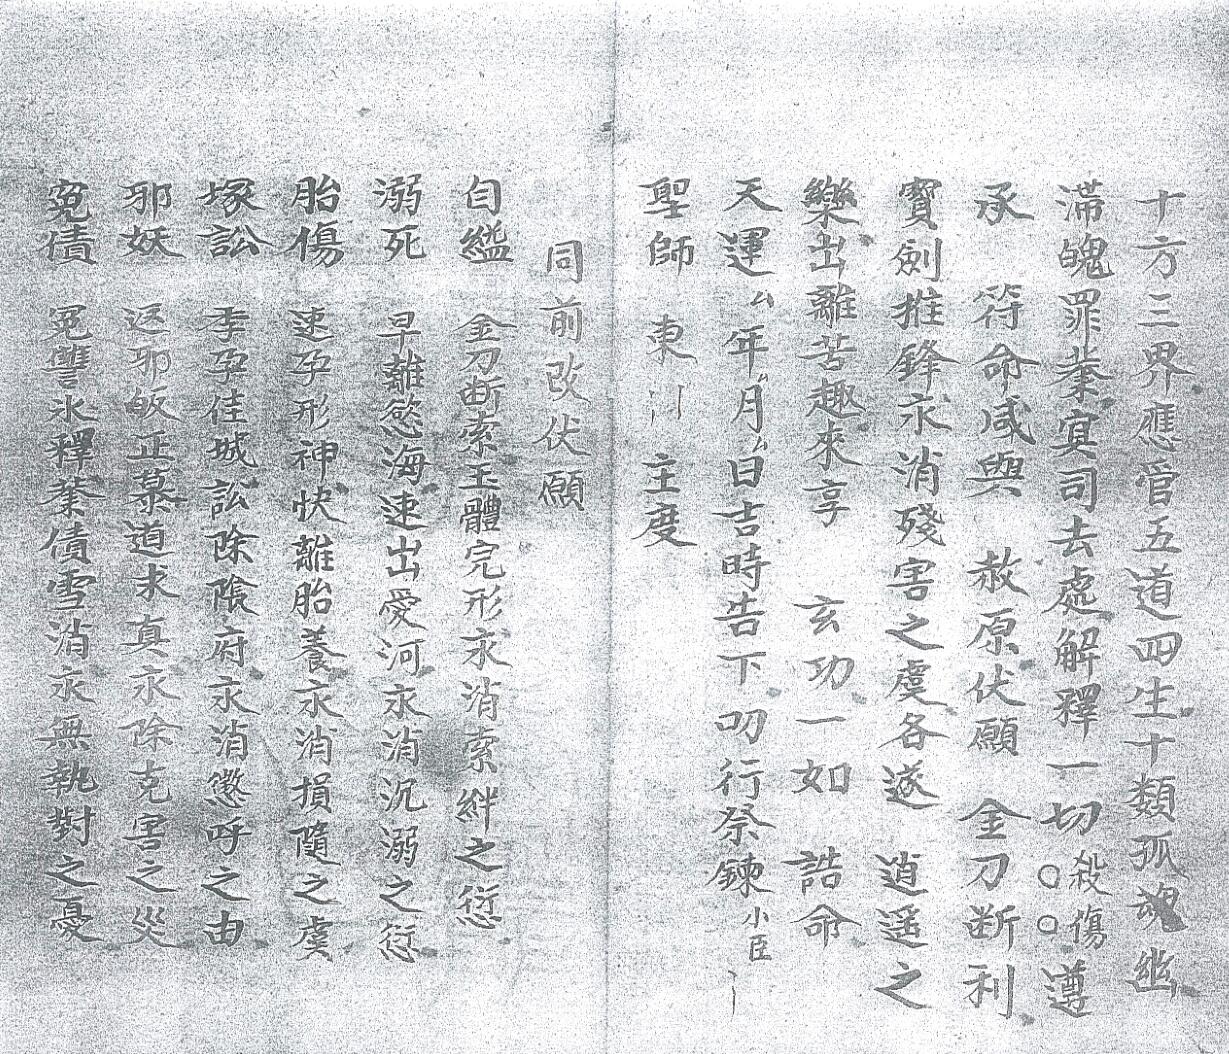 十方三界應管五道四生十類孤魂幽
滯魄罪業冥司去處解釋一切殺傷○○遵
承 符命咸與 赦原伏願 金刀断利
寳劍推鋒永消殘害之虞各遂 逍遥之
樂出離苦趣來享 玄功一如 誥命
天運厶年厶月厶日吉時告下叨行祭鍊小臣
聖師 東川 主度
同前改伏願
自縊 金刀断索玉體完形永消索絆之愆
溺死 早離慾海速出愛河永消沉溺之愆
胎傷 速孕形神快離胎養永消損隨之虞
塚訟 季孕佳城訟除陰府永消懲呼之由
邪妖 返邪皈正慕道求真永除克害之災
冤債 冤讐氷釋業債雪消永無執對之憂